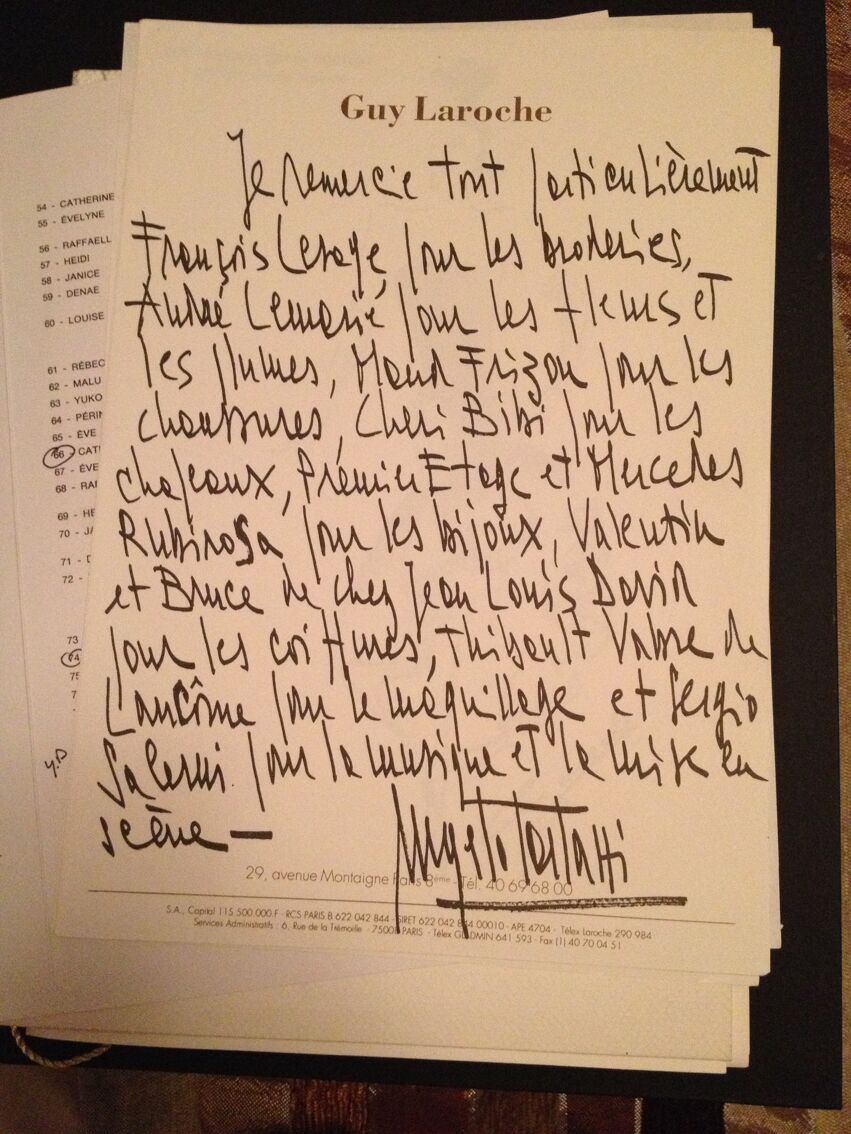 Guy Laroche
Je remercie tout particulièrement
François Lesage, pour les broderies,
André Lemarié pour les fleurs et
les plumes, Maud Frizon pour les
chaussures, Cheri Bibi pour les
chapeaux, Premier Etage et Mercedes
Rubirosa pour les bijoux, Valentin
et Bruce de chez Jean Louis David
pour les coiffures, Thibault Vabre de
Lancôme pour le maquillage et Sergio
Salerni pour la musique et la mise en
scène —
Angelo Tarlazzi
29, avenue Montaigne Paris 8ème - Tél. 40 69 68 00
S.A., Capital 115 500 000 F - RCS PARIS B 622 042 844 - SIRET 622 042 844 00010 - APE 4704 - Télex Laroche 290 984
Services Administratifs : 6, Rue de la Trémoille - 75008 PARIS - Télex GLADMIN 641 593 - Fax (1) 40 70 04 51
54 - CATHERINE
55 - ÉVELYNE
56 - RAFFAELL
57 - HEIDI
58 - JANICE
59 - DENAE
60 - LOUISE
61 - RÉBEC
62 - MALU
63 - YUKO
64 - PÉRI
65 - ÈVE
66 - CAT
67 - ÉVE
68 - RA
69 - HE
70 - J
71 -
72 -
73
74
75
7